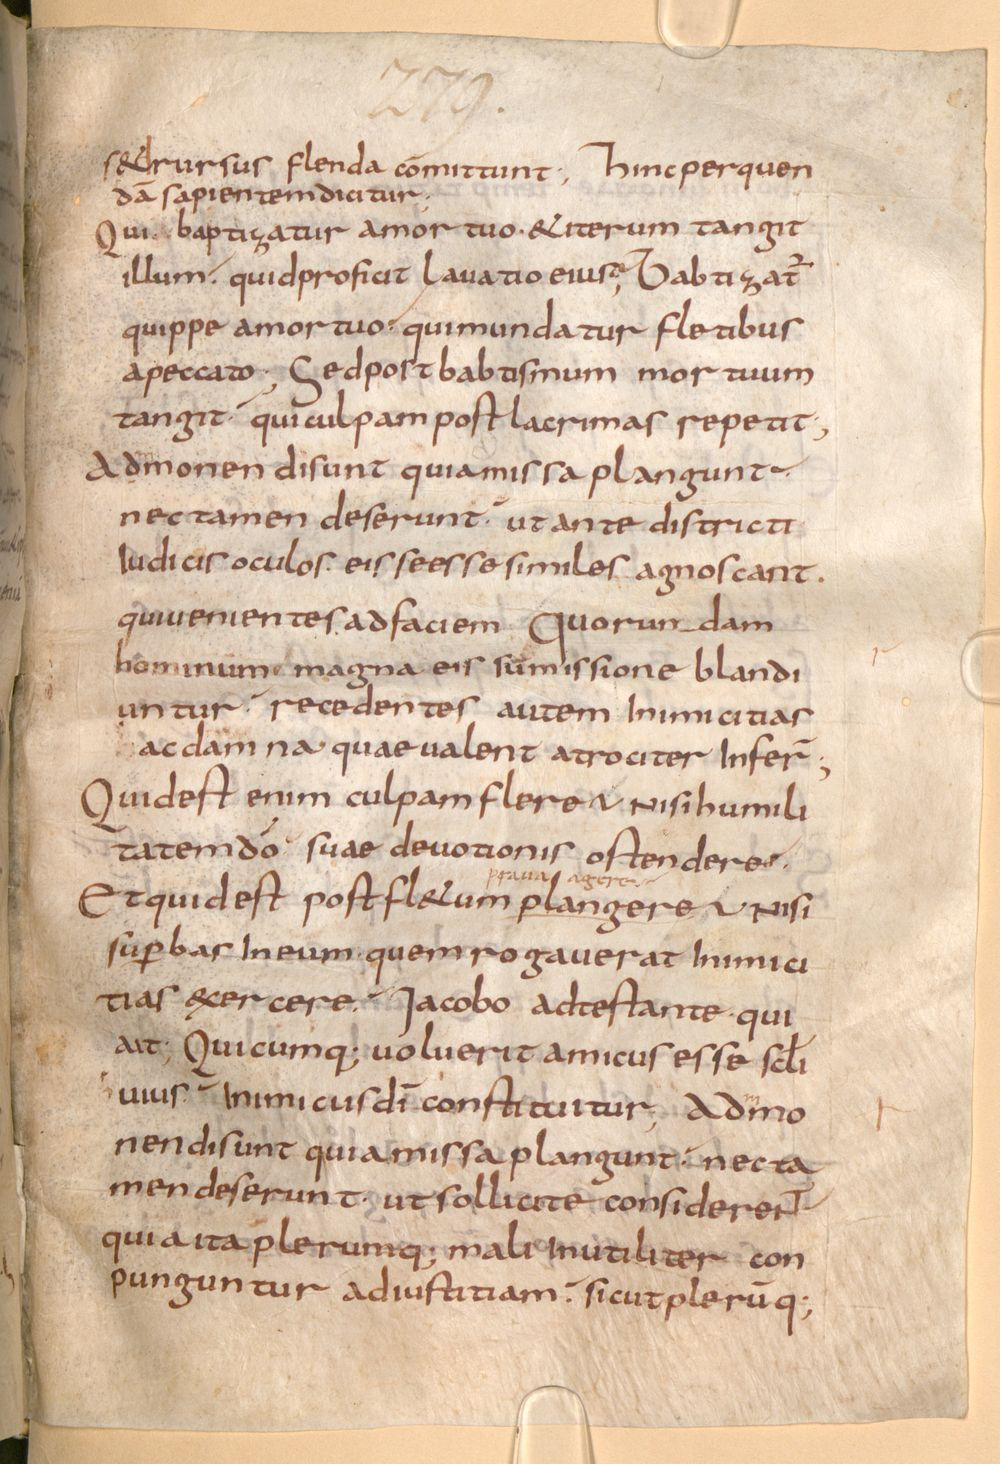 279.
s&rursus flenda cōmittunt; hinc perquen
dā sapientem dicitur;
Qui baptizatur a mortuo · & iterum tangit
illum · quid proficit lavatio eius; Babtizat̄
quippe a mortuo · qui mundatur fletibus
a peccato; Sed post babtismum mortuum
tangit · qui culpam post lacrimas repetit;
Admonendi sunt qui amissa plangunt ·
nec tamen deserunt · ut ante districti
Iudicis oculos eis se esse similes agnoscant.
qui venientes ad faciem Quorundam
hominum magna eis sūmissione blandi
untur · recedentes autem Inimicitias
ac damna quae valent atrociter Infer̄;
Quid est enim culpam flere · Nisi humili
tatem dō suae devotionis ostendere ·
prava agere
Et quid est post fl&um plangere · Nisi
sup̄bas In eum quem rogaverat Inimici
tias exercere · Jacobo adtestante · qui
ait; Quicumq; voluerit amicus esse scl̄i
uius · Inimicus dī constituitur; Admo
nendi sunt qui amissa plangunt · nec ta
men deserunt · ut sollicite considerent
quia ita plerumq; mali Inutiliter con
punguntur ad iustitiam · sicut plerūq;